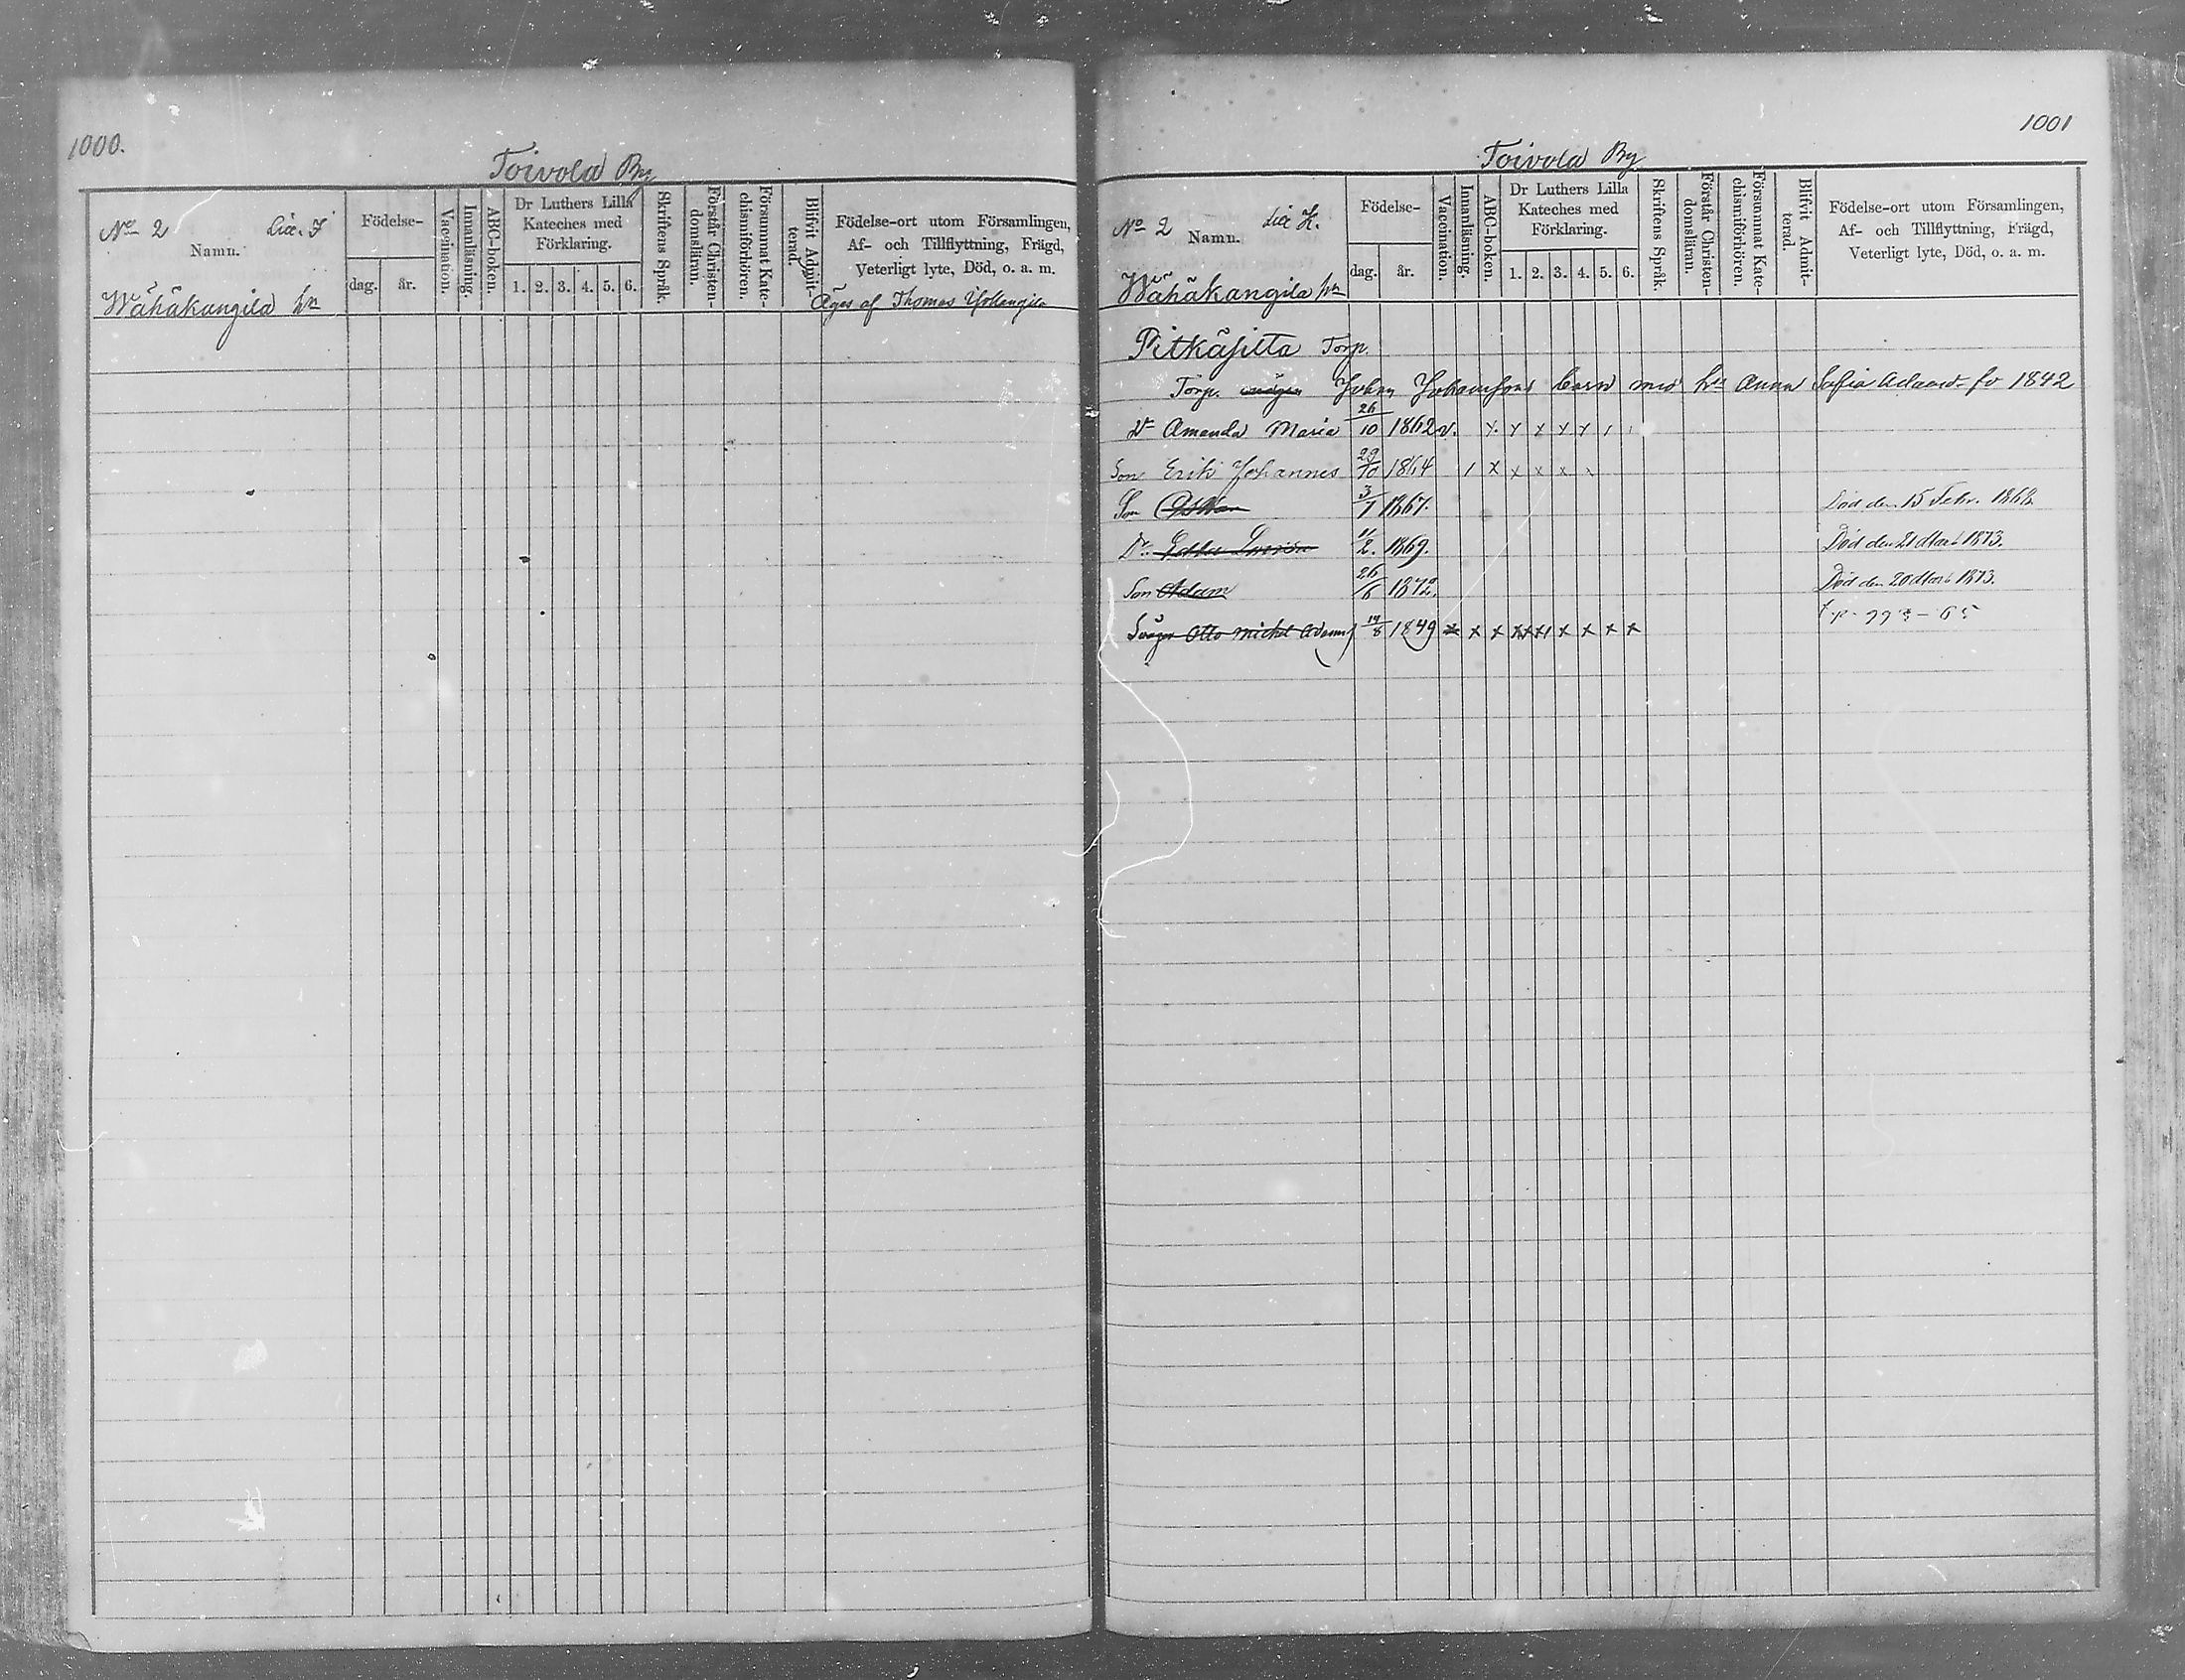 1000.
Toivola By
No 2 Lit. I
Namn.
Wähäkangila hn
Födelse-
dag. år.
Vaccination.
Innanläsning.
ABC-boken.
Dr Luthers Lilla
Kateches med
Förklaring.
1. 2. 3. 4. 5. 6.
Skriftens Språk.
Förstår Christen-
domsläran.
Försummat Kate-
chismiförhören.
Blifvit Admit-
terad.
Födelse-ort utom Församlingen,
Af- och Tillflyttning, Frägd,
Veterligt lyte, Död, o. a. m.
Äges af Thomas
1001
Toivola By
No 2 Lit K.
Namn.
Wähäkangila hn
Födelse-
dag. år.
Vaccination.
Innanläsning.
ABC-boken.
Dr Luthers Lilla
Kateches med
Förklaring.
1. 2. 3. 4. 5. 6.
Skriftens Språk.
Förstår Christen-
domsläran.
Försummat Kate-
chismiförhören.
Blifvit Admit-
terad.
Födelse-ort utom Församlingen,
Af- och Tillflyttning, Frägd,
Veterligt lyte, Död, o. a. m.
Pitkäsilta Torp.
Torp. Johan Johanssons barn med hu Anna Sofia Adamsd. fö 1842
Dr Amanda Maria 26/10 1862 v. x x x x x / /
Son Erik Johannes 29/10 1864 / x x x x x
Son Oskar 3/1 1867. Död den 15 Febr. 1868.
Dr. Edla Lovisa 11/2. 1869. Död den 21 Mart. 1873.
Son Adam 26/6 1872. Död den 20 Mart. 1873.
Svåger Otto Michel Adamss 1849 x x x x x x x x